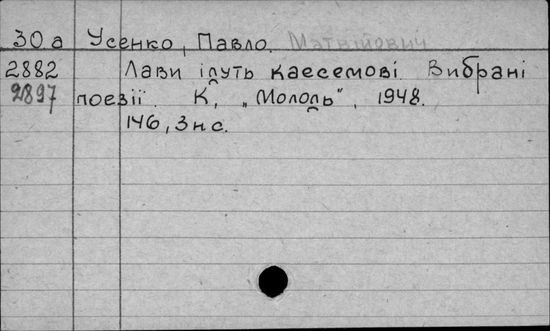 30а Усенко, Павло. Матвійович
2882 Лави ідуть каесемові Вибрані
2897 поезії. К, „Молодь", 1948.
146, 3 нс.